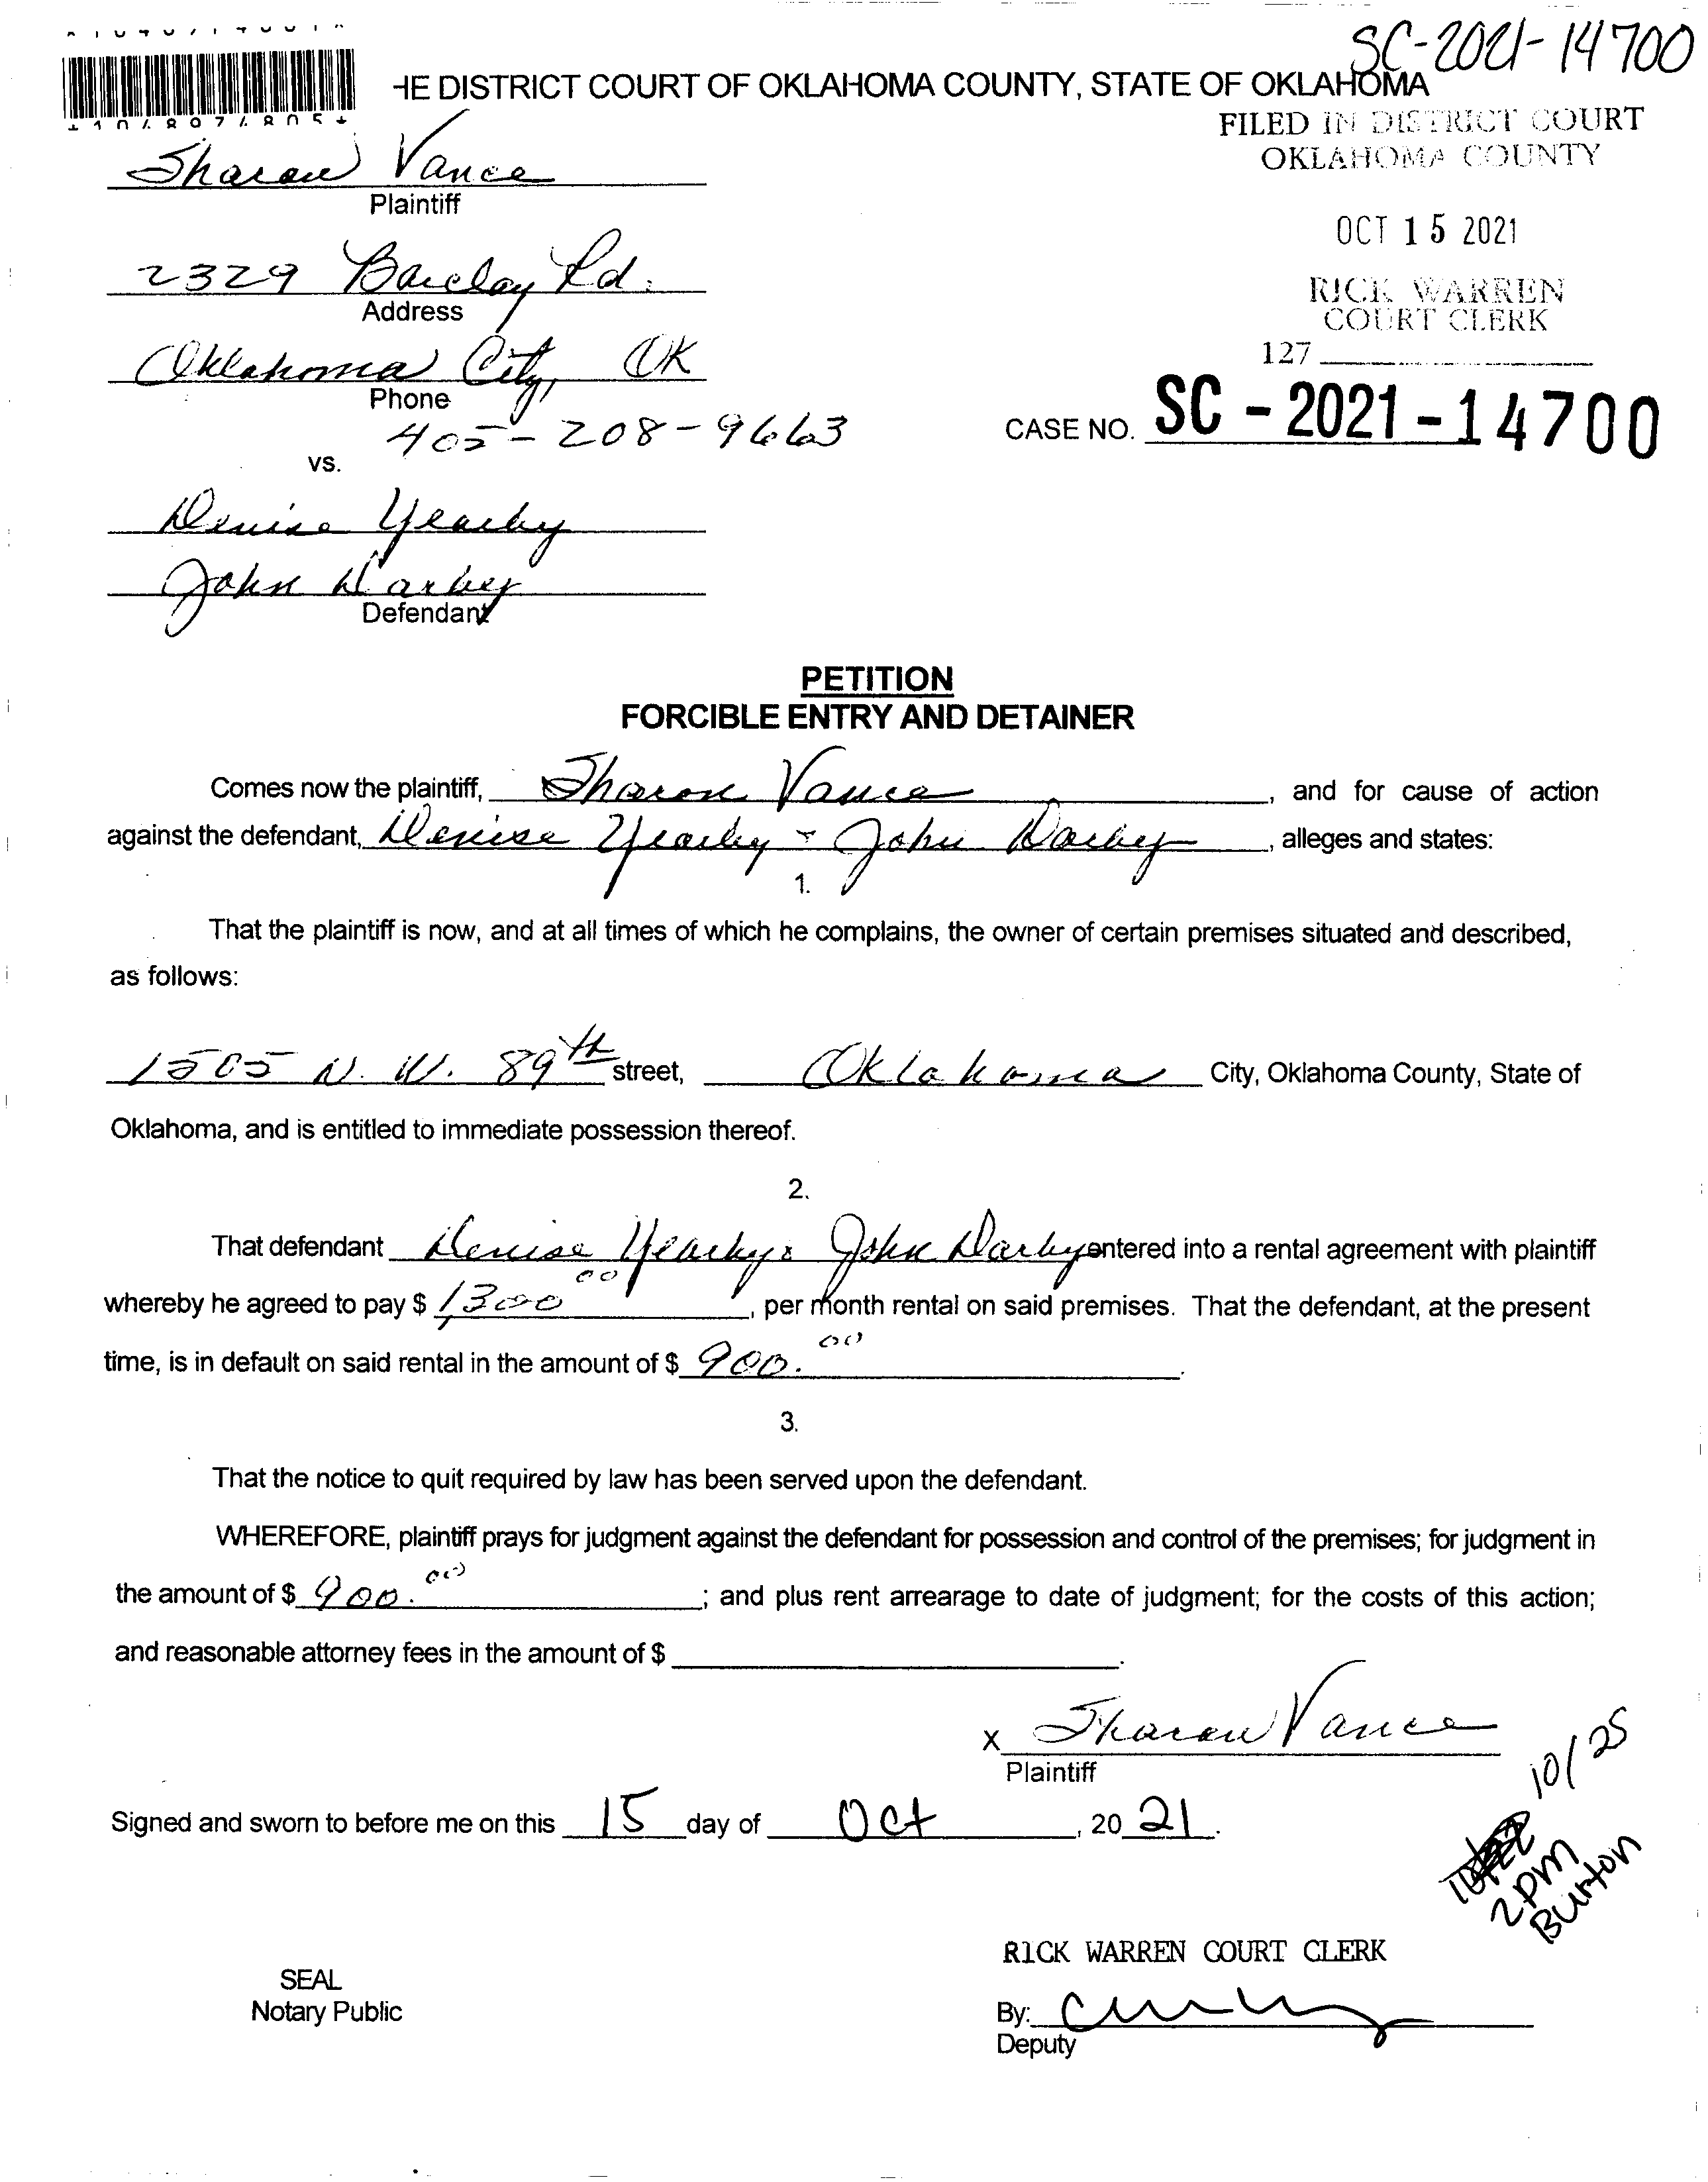 SC-2021-14700
HE DISTRICT COURT OF OKLAHOMA COUNTY, STATE OF OKLAHOMA
FILED IN DISTRICT COURT
OKLAHOMA COUNTY
OCT 15 2021
RICK WARREN
COURT CLERK
127
Sharon Vance
Plaintiff
2329 Barclay Rd.
Address
Oklahoma City, OK
Phone
405-208-9663
CASE NO. SC - 2021 - 14700
vs.
Denise Yearby
John Darby
Defendant
PETITION
FORCIBLE ENTRY AND DETAINER
Comes now the plaintiff, Sharon Vance, and for cause of action
against the defendant, Denise Yearby + John Darby, alleges and states:
1.
That the plaintiff is now, and at all times of which he complains, the owner of certain premises situated and described,
as follows:
1505 N. W. 89th street, Oklahoma City, Oklahoma County, State of
Oklahoma, and is entitled to immediate possession thereof.
2.
That defendant Denise Yearby & John Darby entered into a rental agreement with plaintiff
whereby he agreed to pay $ 1300 00, per month rental on said premises. That the defendant, at the present
time, is in default on said rental in the amount of $ 900.00.
3.
That the notice to quit required by law has been served upon the defendant.
WHEREFORE, plaintiff prays for judgment against the defendant for possession and control of the premises; for judgment in
the amount of $ 900.00; and plus rent arrearage to date of judgment; for the costs of this action;
and reasonable attorney fees in the amount of $ .
x Sharon Vance
Plaintiff
Signed and sworn to before me on this 15 day of Oct, 20 21.
10/25
2 pm
Burton
RICK WARREN COURT CLERK
SEAL
Notary Public
By:
Deputy